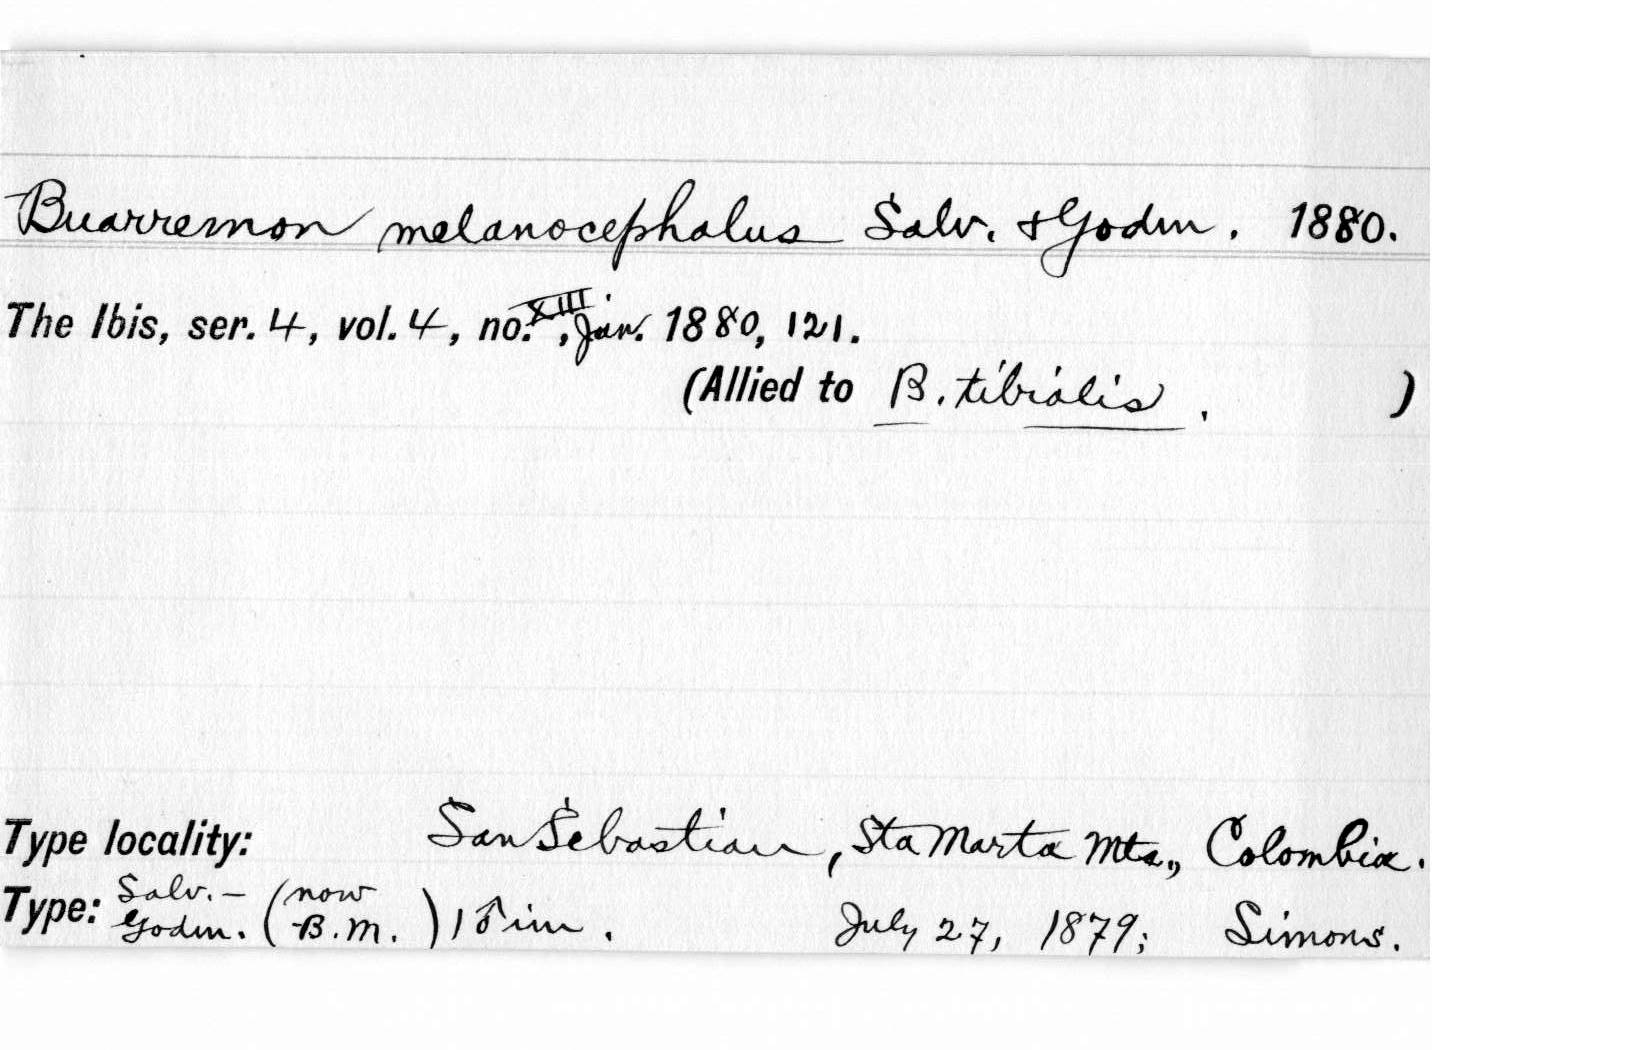 Buarremon melanocephalus Salv. & Godm. 1880.
The Ibis, ser. 4, vol. 4, no. XIII., Jan. 1880, 121.
(Allied to B. tibialis. )
Type locality: San Sebastian, Sta Marta Mts., Colombia.
Type: Salv.-Godm. (now B.M.) 1 ♂ im. July 27, 1879; Simons.